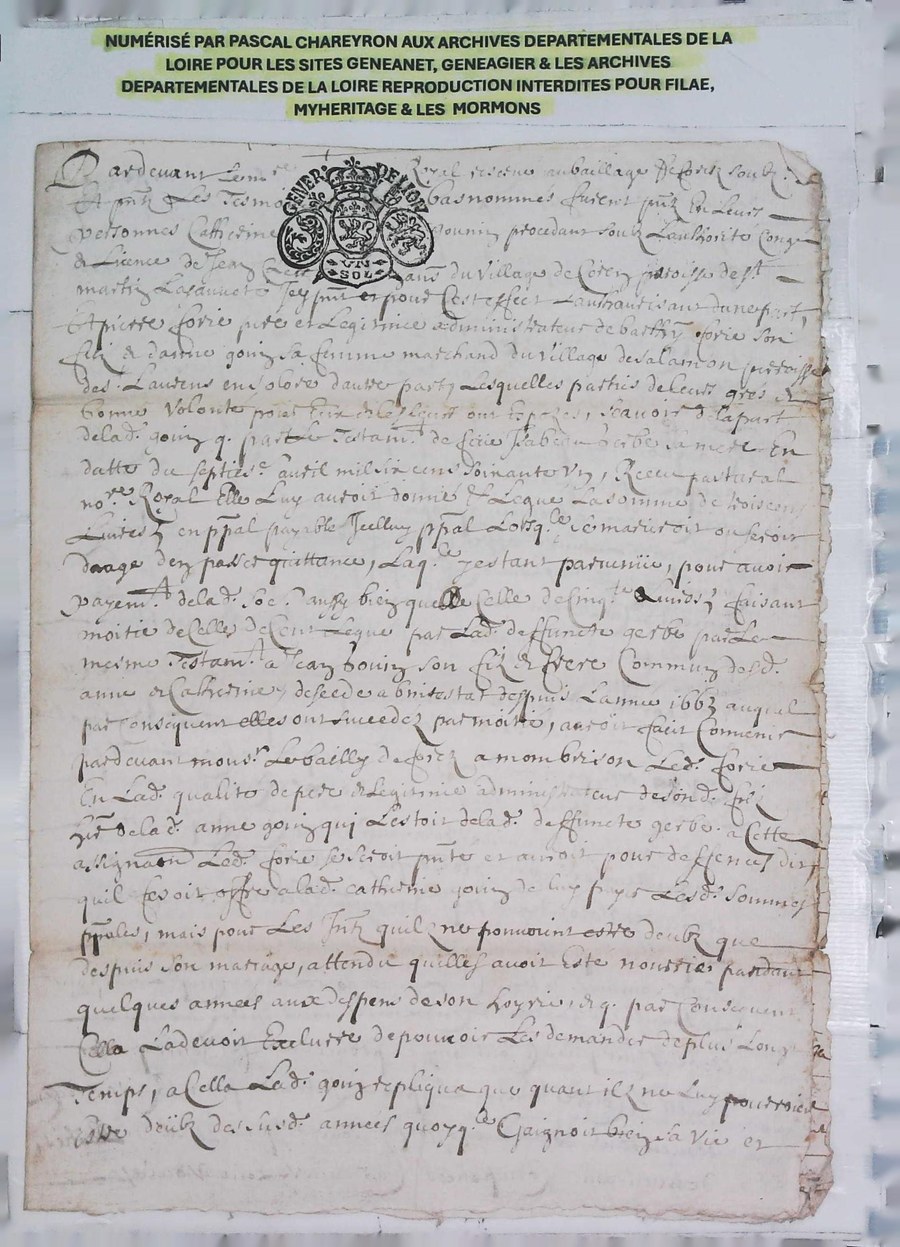 NUMÉRISÉ PAR PASCAL CHAREYRON AUX ARCHIVES DEPARTEMENTALES DE LA
LOIRE POUR LES SITES GENEANET, GENEAGIER & LES ARCHIVES
DEPARTEMENTALES DE LA LOIRE REPRODUCTION INTERDITES POUR FILAE,
MYHERITAGE & LES MORMONS
GENER. DE LION
VN
SOL
Pardevant Le no.re Royal au bailliage de forez soubz.
Et pntz Les Tesmo bas nommés furent pntz En Leurs
personnes Catherine procedant soubz Lauthorite Congé
& Licence de Jean du Village de paroisse de St
martin Lasauveté Icy pnt et pour Cest effect Lauthorisant dune part,
Et pierre forie pere et Legitime administrateur de forie son
filz & danne gouin sa femme marchand du Village de salamon parroisse
de St. Laurens en solore dautre party Lesquelles parties de Leurs gres &
bonne Volonté pour Eux & les Leurs ont Exposés, scavoir de la part
de lad. gouin q. par Le Testamt de gerbe sa mere En
datte du septies.e avril mil six cens soixante un, Receu pastural
no.re Royal Elle Luy auroit donné & Legué La somme de trois cens
Livres en ppal payable Icelluy ppal Lorsq.le se marieroit ou seroit
daage den passer quittance, Laq.le y estant parvenue, pour avoir
payemt de lad. so.e aussy bien que Celle de Cinq.te Livres, faisant
moitié de Celle de Cent Legué par Lad. deffuncte gerbe par Le
mesme Testamt a Jean gouin son filz & frere Commun desd.
anne & Catherine, deceedé abintestat despuis Lannee 1663 auquel
par Consequent elles ont succedez par moitié, auroit faict Convenir
pardevant mons.r Le bailly de forez a mombrison Led. forie
En Lad. qualité de pere & legitime administrateur de sond. filz
de lad. anne gouin qui Lestoit de lad. deffuncte gerbe. a Cette
assignaon Led. forie se seroit pnté et auroit pour deffences dit
quil feroit offre a lad. Catherine gouin de luy payer Lesd. sommes
ppales, mais pour Les Intz quilz ne pouvoint estre deubz que
despuis son mariage, attendu quelle avoit Esté nourrie pendant
quelques annees aux despens de son & q. par Consequent
Cella Ladevoit Exclurre de pouvoir Les demander de plus Long
Temps, a Cella Lad. gouin repliqua que quant ilz ne Luy pourroient
estre deubz des susd. annees quoyq.le Gaignoit bien sa Vie et